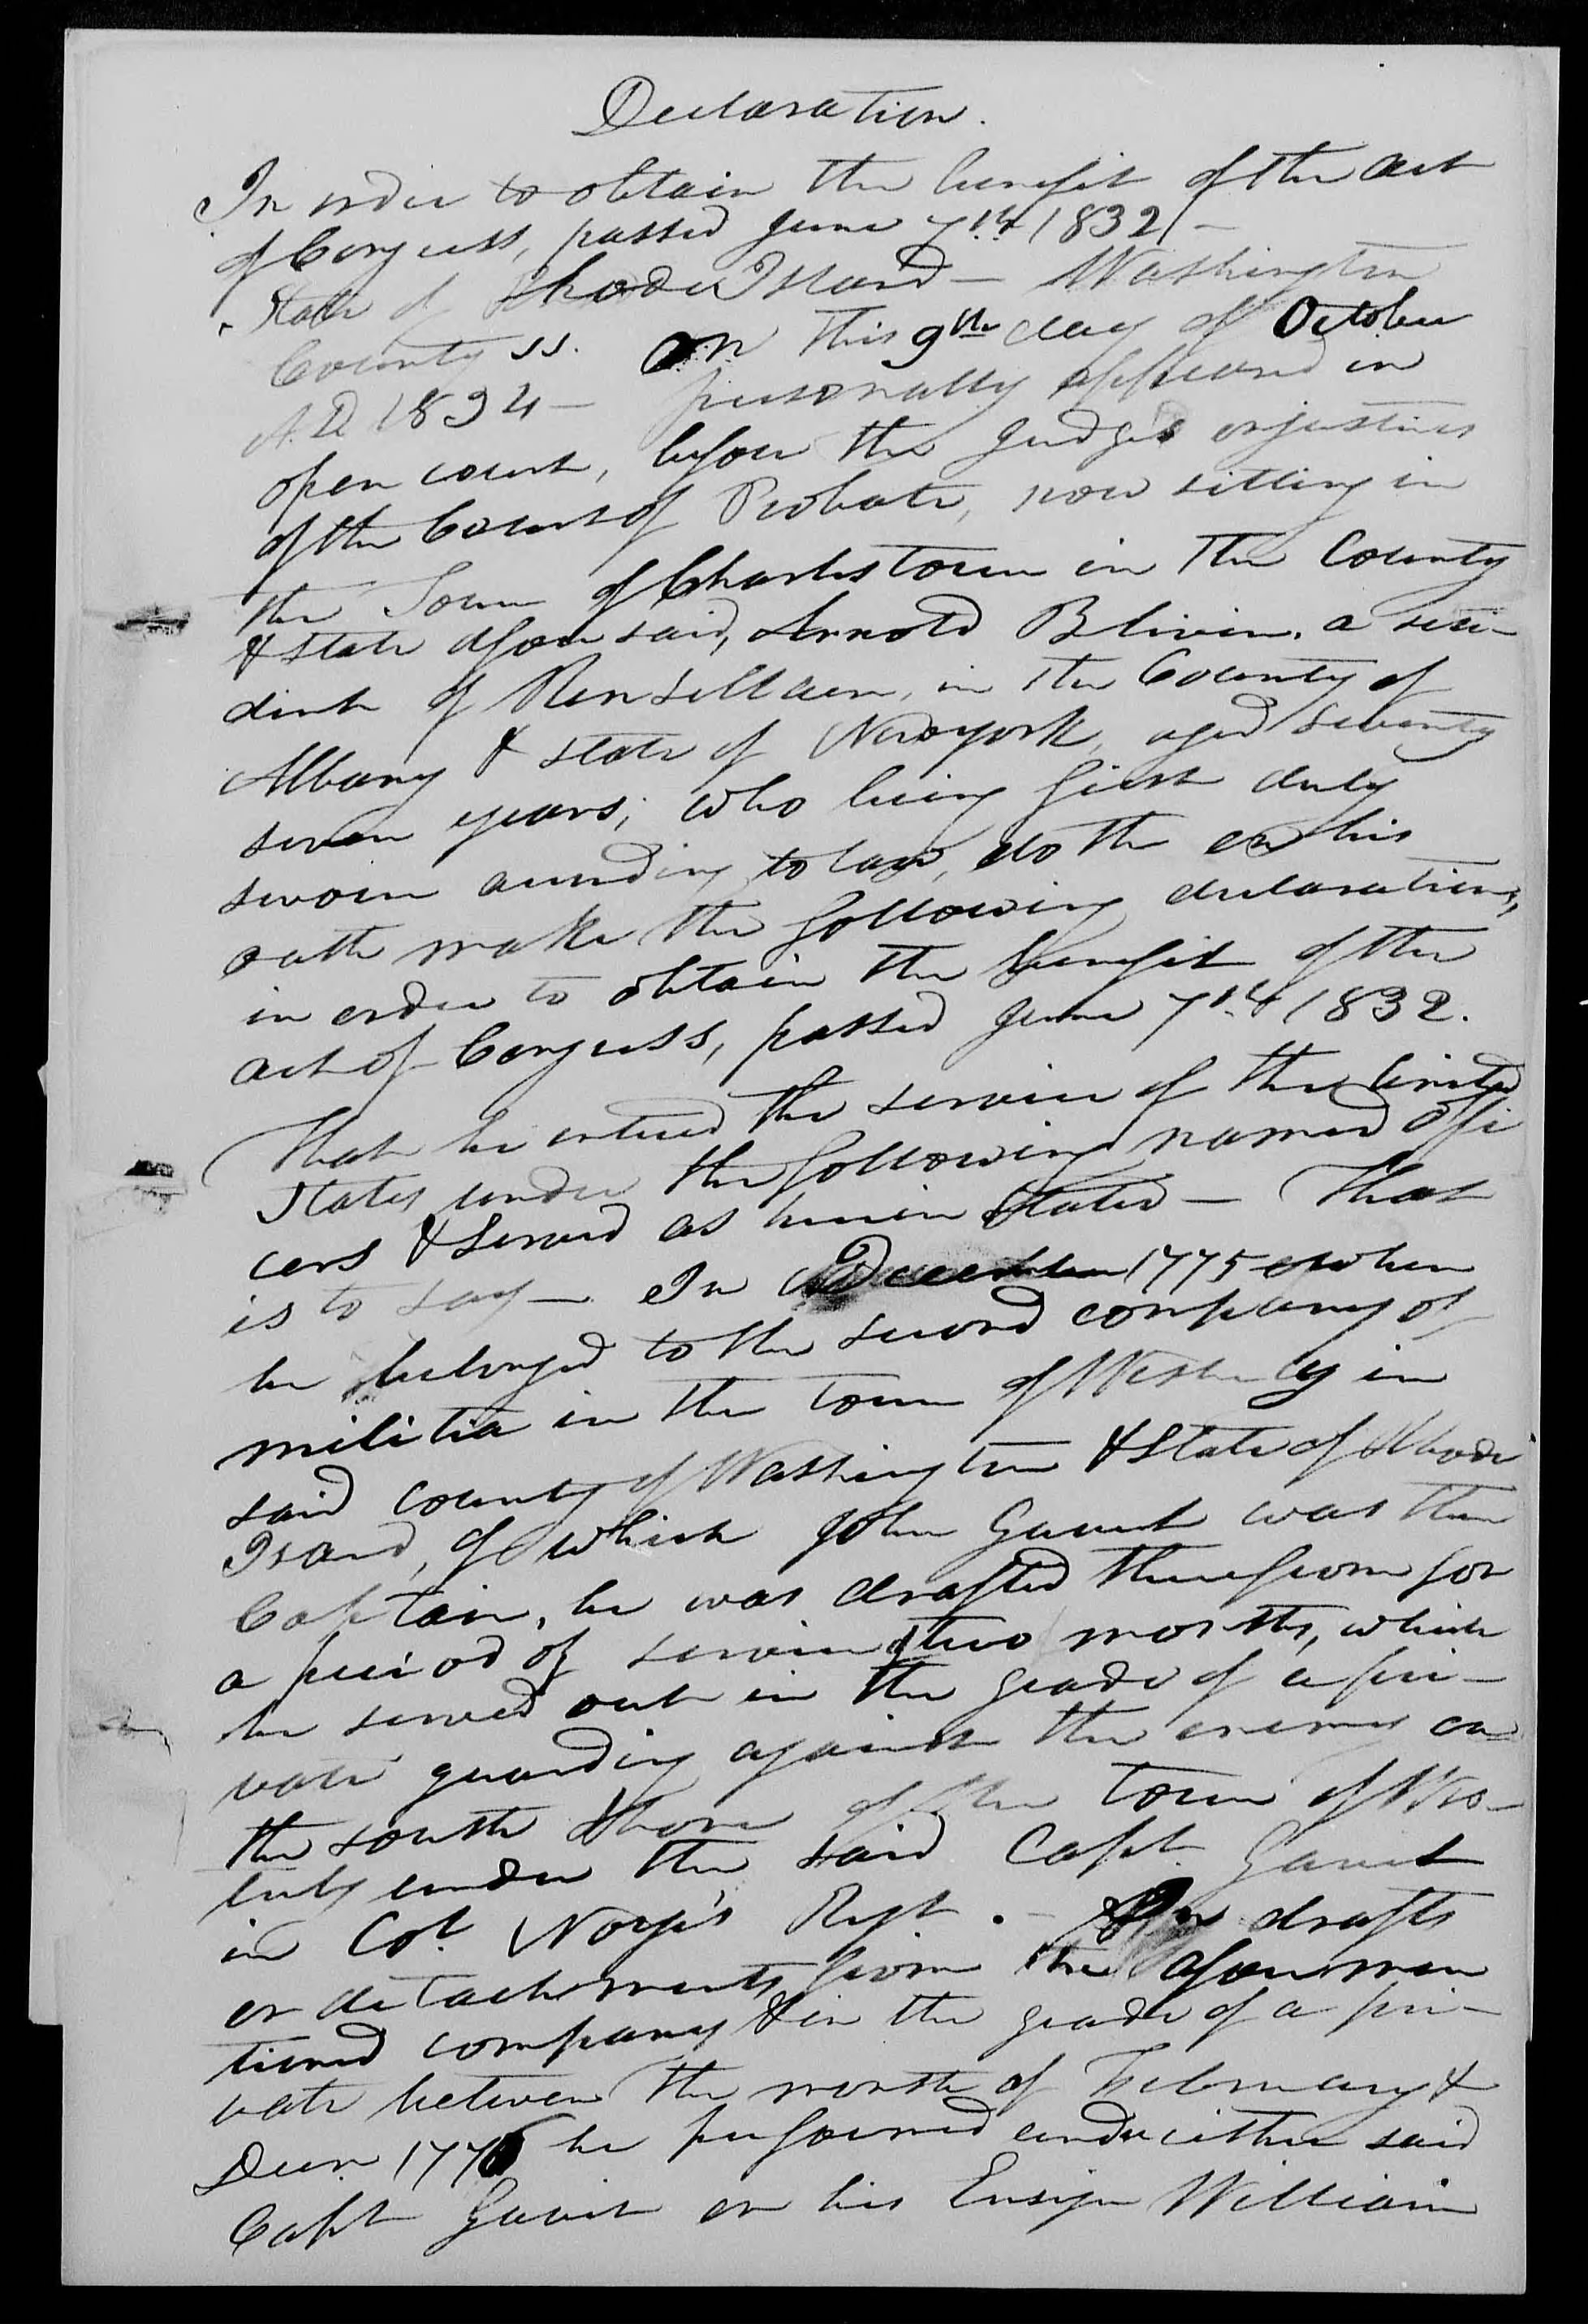 Declaration.
In order to obtain the benefit of the act
of Congress, passed June 7th 1832 —
State of Rhode Island — Washington
County ss. On this 9th day of October
A.D. 1834 — personally appeared in
open court, before the Judges or justices
of the Court of Probate, now sitting in
the Town of Charlestown in the County
& state aforesaid, Arnold Bliven, a resi-
dent of Rensellaer, in the County of
Albany & state of Newyork, aged seventy
seven years; who being first duly
sworn according to law, doth on his
oath make the following declaration,
in order to obtain the benefit of the
act of Congress, passed June 7th 1832.
That he entered the service of the United
States under the following named offi
cers & served as herein stated — That
is to say — In December 1775 when
he belonged to the second company of
militia in the town of Westerly in
said county of Washington & State of Rhode
Island, of which John Gavit was then
Captain, he was drafted therefrom for
a period of service of two months, which
he served out in the grade of a pri-
vate guarding against the enemy on
the south shore of the town of Wes-
terly under the said Capt. Gavit
in Col. Noyes's Regt. — In drafts
or detachments from the aforemen
tioned company & in the grade of a pri-
vate between the month of February &
Decr. 1776 he performed under either said
Capt Gavit or his Ensign William